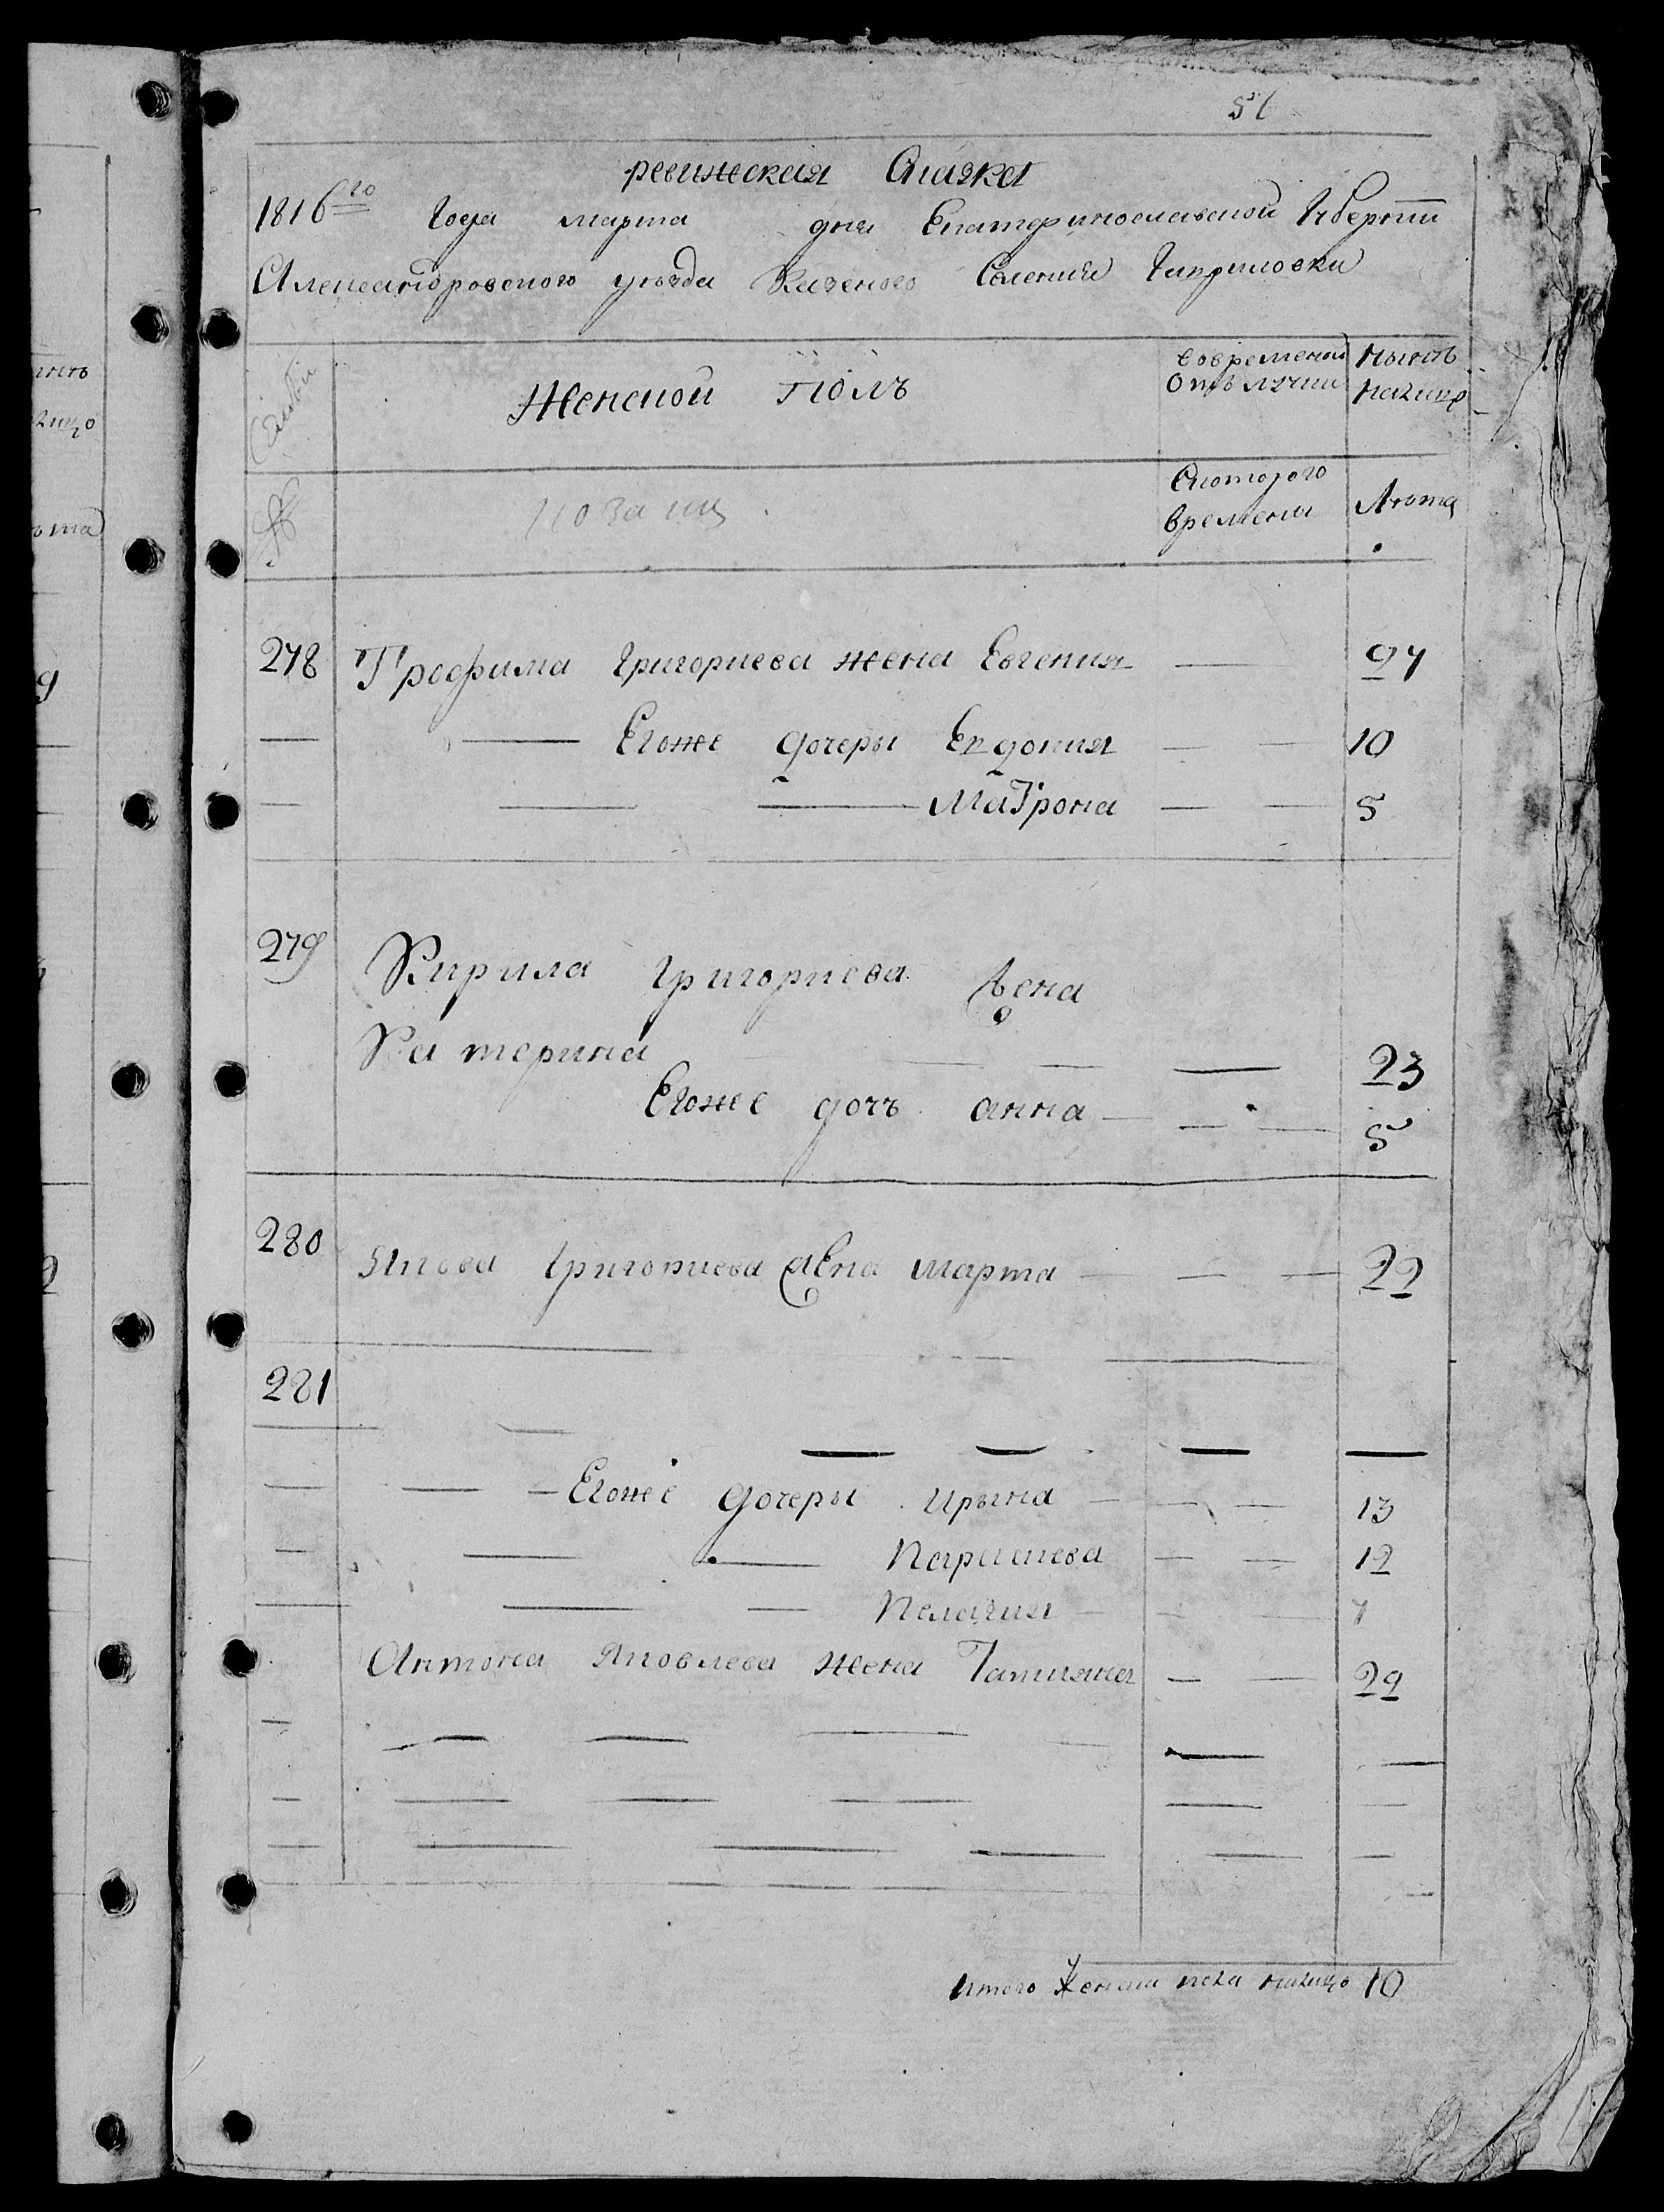 51
ревижская Сказка
1816го Года марта дня Екатеринославской Губернии
Александровского уезда Казеного Селения Гавриловки
Семьи
Женской Полъ
вовременой Отлучки
Ныне налицо
№
Скоторого времени
Лета
278 Трофима Григориева жена Евгения — 27
— — Егоже дочеры Евдокия — — 10
— — — Матрона — — 5
279 Кирила Григориева жена
Катерина — — — 23
Егоже дочъ анна — — — 5
280 Якова Григориева жена марта — — — 22
281
— — — — — —
— — — Егоже дочеры Ирына — — — 13
— — — Параскева — — 12
— — — Пелагия — — — 7
Антона Яковлева жена Татияна — — 22
Итого женска пола налицо 10